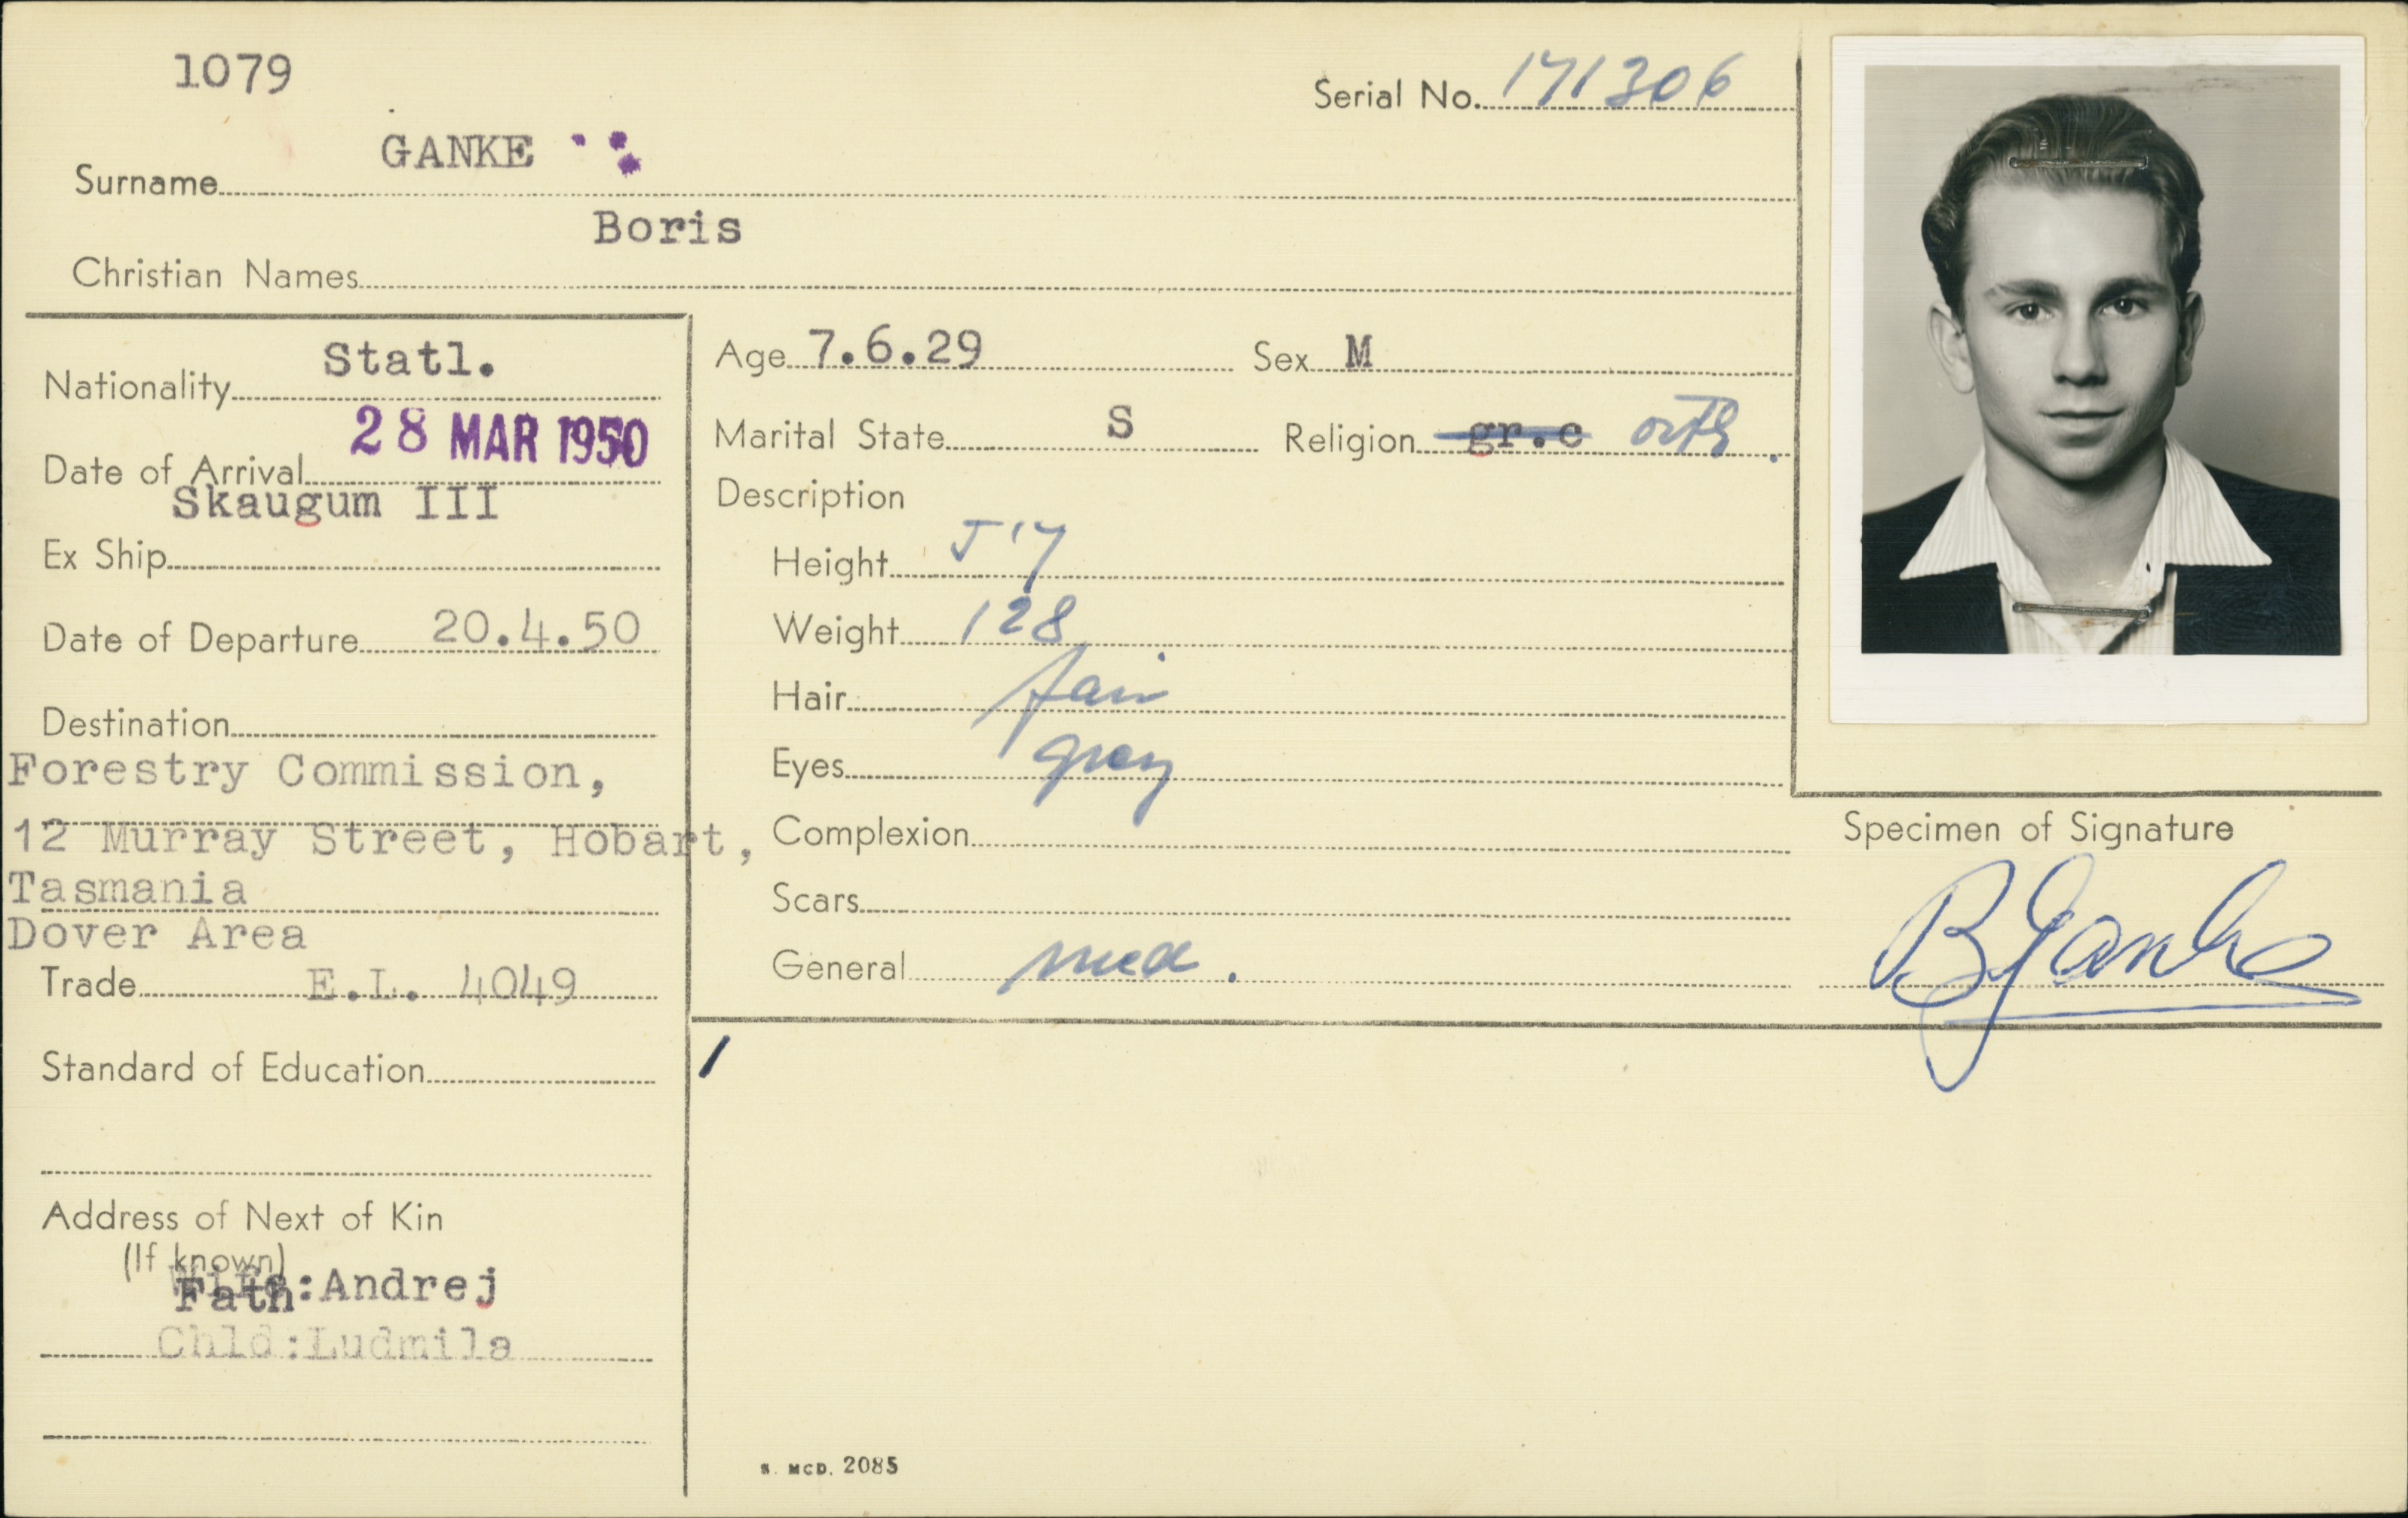 1079
Serial No. 171306
GANKE
Surname
Boris
Christian Names
Statl.
Nationality
28 MAR 1950
Date of Arrival
Skaugum III
Ex Ship
Date of Departure 20.4.50
Destination
Forestry Commission,
12 Murray Street, Hobart,
Tasmania
Dover Area
Trade E.L. 4049
Standard of Education
Address of Next of Kin
(If known)
Fath:Andrej
Chld:Ludmila
Age 7.6.29 Sex M
Marital State S Religion gr.c orth.
Description
Height 5'7
Weight 128
Hair fair
Eyes grey
Complexion
Scars
General med.
Specimen of Signature
BGanke
S. MCD. 2085